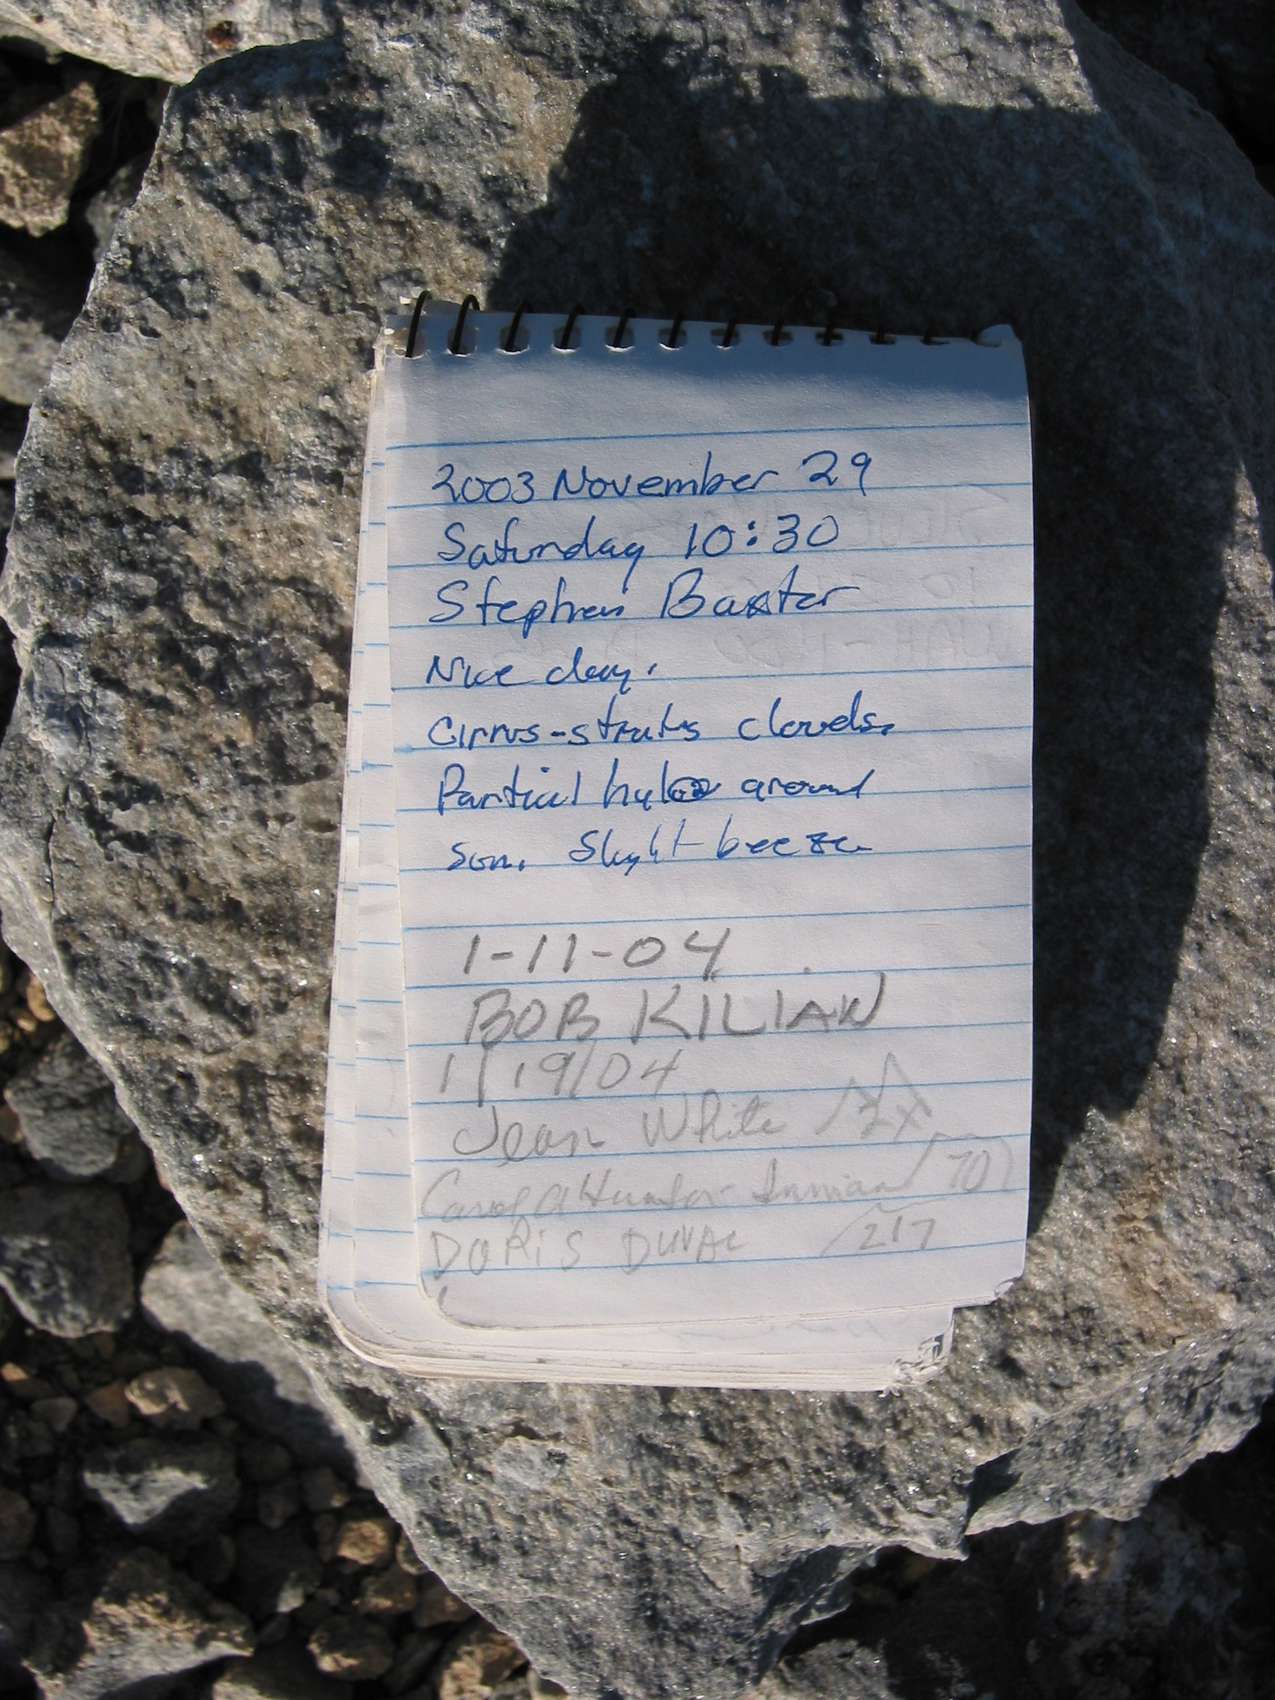 2003 November 29
Saturday 10:30
Stephen Baxter
Nice day.
Cirrus-stratus clouds.
Partial halo around
sun. Slight breeze
1-11-04
BOB KILIAN
1/19/04
Jean White
Carol
DORIS DUVAL 217